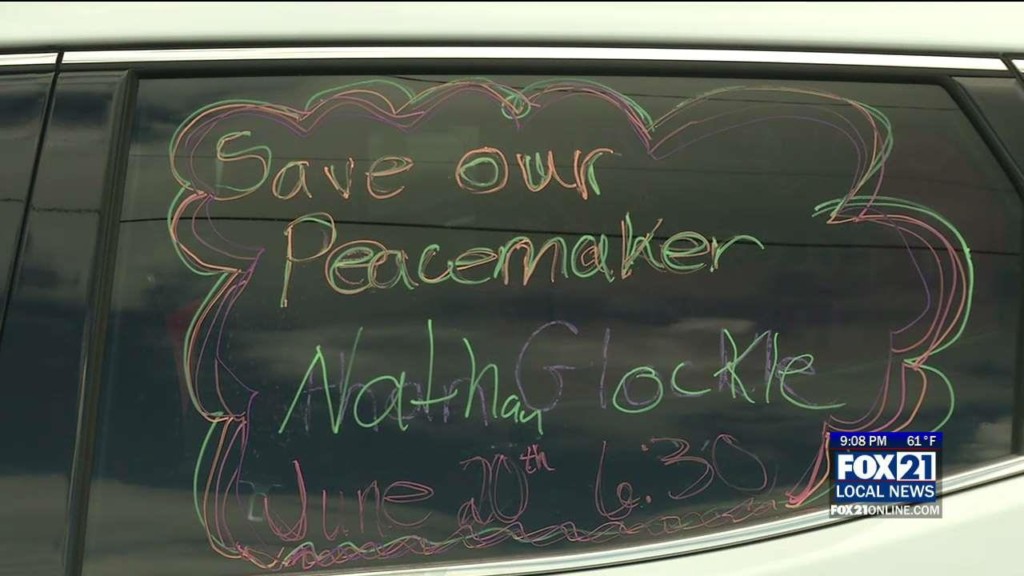 Save our
Peacemaker
Nathan Glockle
June 20th 6:30
9:08 PM 61°F
FOX 21
LOCAL NEWS
FOX21ONLINE.COM